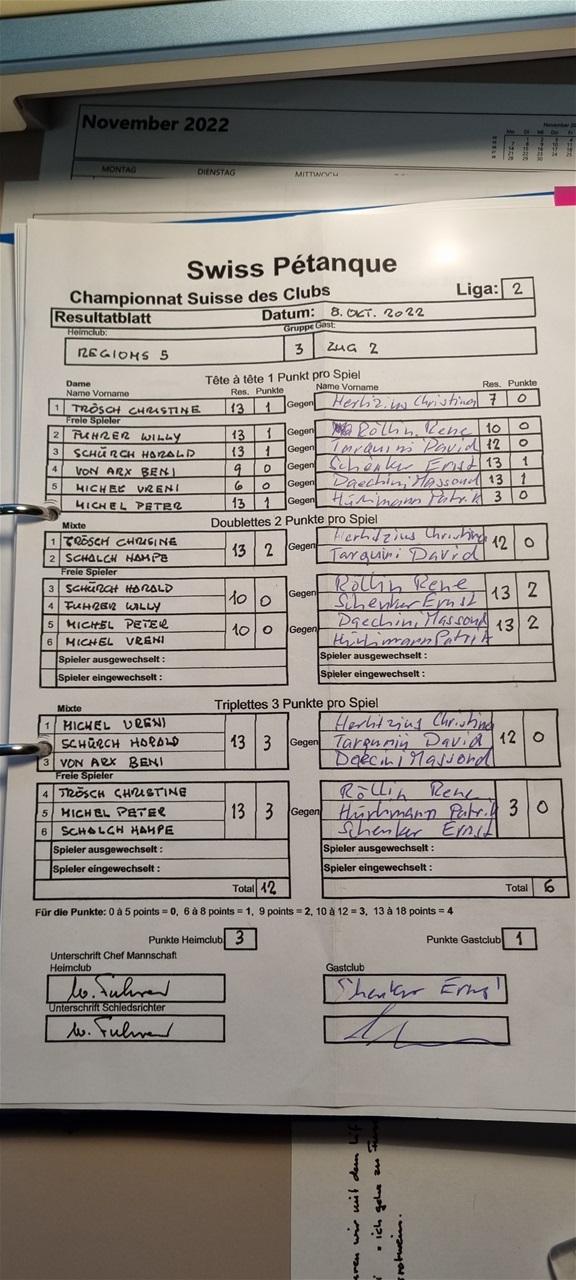 November 2022
MONTAG DIENSTAG MITTWOCH
Swiss Pétanque
Championnat Suisse des Clubs Liga: 2
Resultatblatt Datum: 8. OKT. 2022
Heimclub: Gruppe Gast:
REGIOMS 5 3 ZUG 2
Tête à tête 1 Punkt pro Spiel
Dame
Name Vorname Res. Punkte Name Vorname Res. Punkte
1 TRÖSCH CHRISTINE 13 1 Gegen Christina 7 0
Freie Spieler
2 FUHRER WILLY 13 1 Gegen Röllin Rene 10 0
3 SCHÜRCH HORALD 13 1 Gegen Tarquini David 12 0
4 VON ARX BENI 9 0 Gegen Schenker Ernst 13 1
5 MICHEL VRENI 6 0 Gegen Daechini Massoud 13 1
MICHEL PETER 13 1 Gegen Hürlimann Patrik 3 0
Mixte Doublettes 2 Punkte pro Spiel
1 TRÖSCH CHRISINE 13 2 Gegen Christina 12 0
2 SCHALCH HAMPE Tarquini David
Freie Spieler
3 SCHÜRCH HORALD 10 0 Gegen Röllin Rene 13 2
4 FUHRER WILLY Schenker Ernst
5 MICHEL PETER 10 0 Gegen Daechini Massoud 13 2
6 MICHEL VRENI Hürlimann Patrik
Spieler ausgewechselt : Spieler ausgewechselt :
Spieler eingewechselt : Spieler eingewechselt :
Mixte Triplettes 3 Punkte pro Spiel
1 MICHEL VRENI Christina
SCHÜRCH HORALD 13 3 Gegen David 12 0
3 VON ARX BENI Massoud
Freie Spieler
4 TRÖSCH CHRISTINE Röllin Rene
5 MICHEL PETER 13 3 Gegen Hürlimann Patrik 3 0
6 SCHALCH HAMPE Schenker Ernst
Spieler ausgewechselt : Spieler ausgewechselt :
Spieler eingewechselt : Spieler eingewechselt :
Total 12 Total 6
Für die Punkte: 0 à 5 points = 0, 6 à 8 points = 1, 9 points = 2, 10 à 12 = 3, 13 à 18 points = 4
Punkte Heimclub 3 Punkte Gastclub 1
Unterschrift Chef Mannschaft
Heimclub Gastclub
W. Fuhrer Schenker Ernst
Unterschrift Schiedsrichter
W. Fuhrer